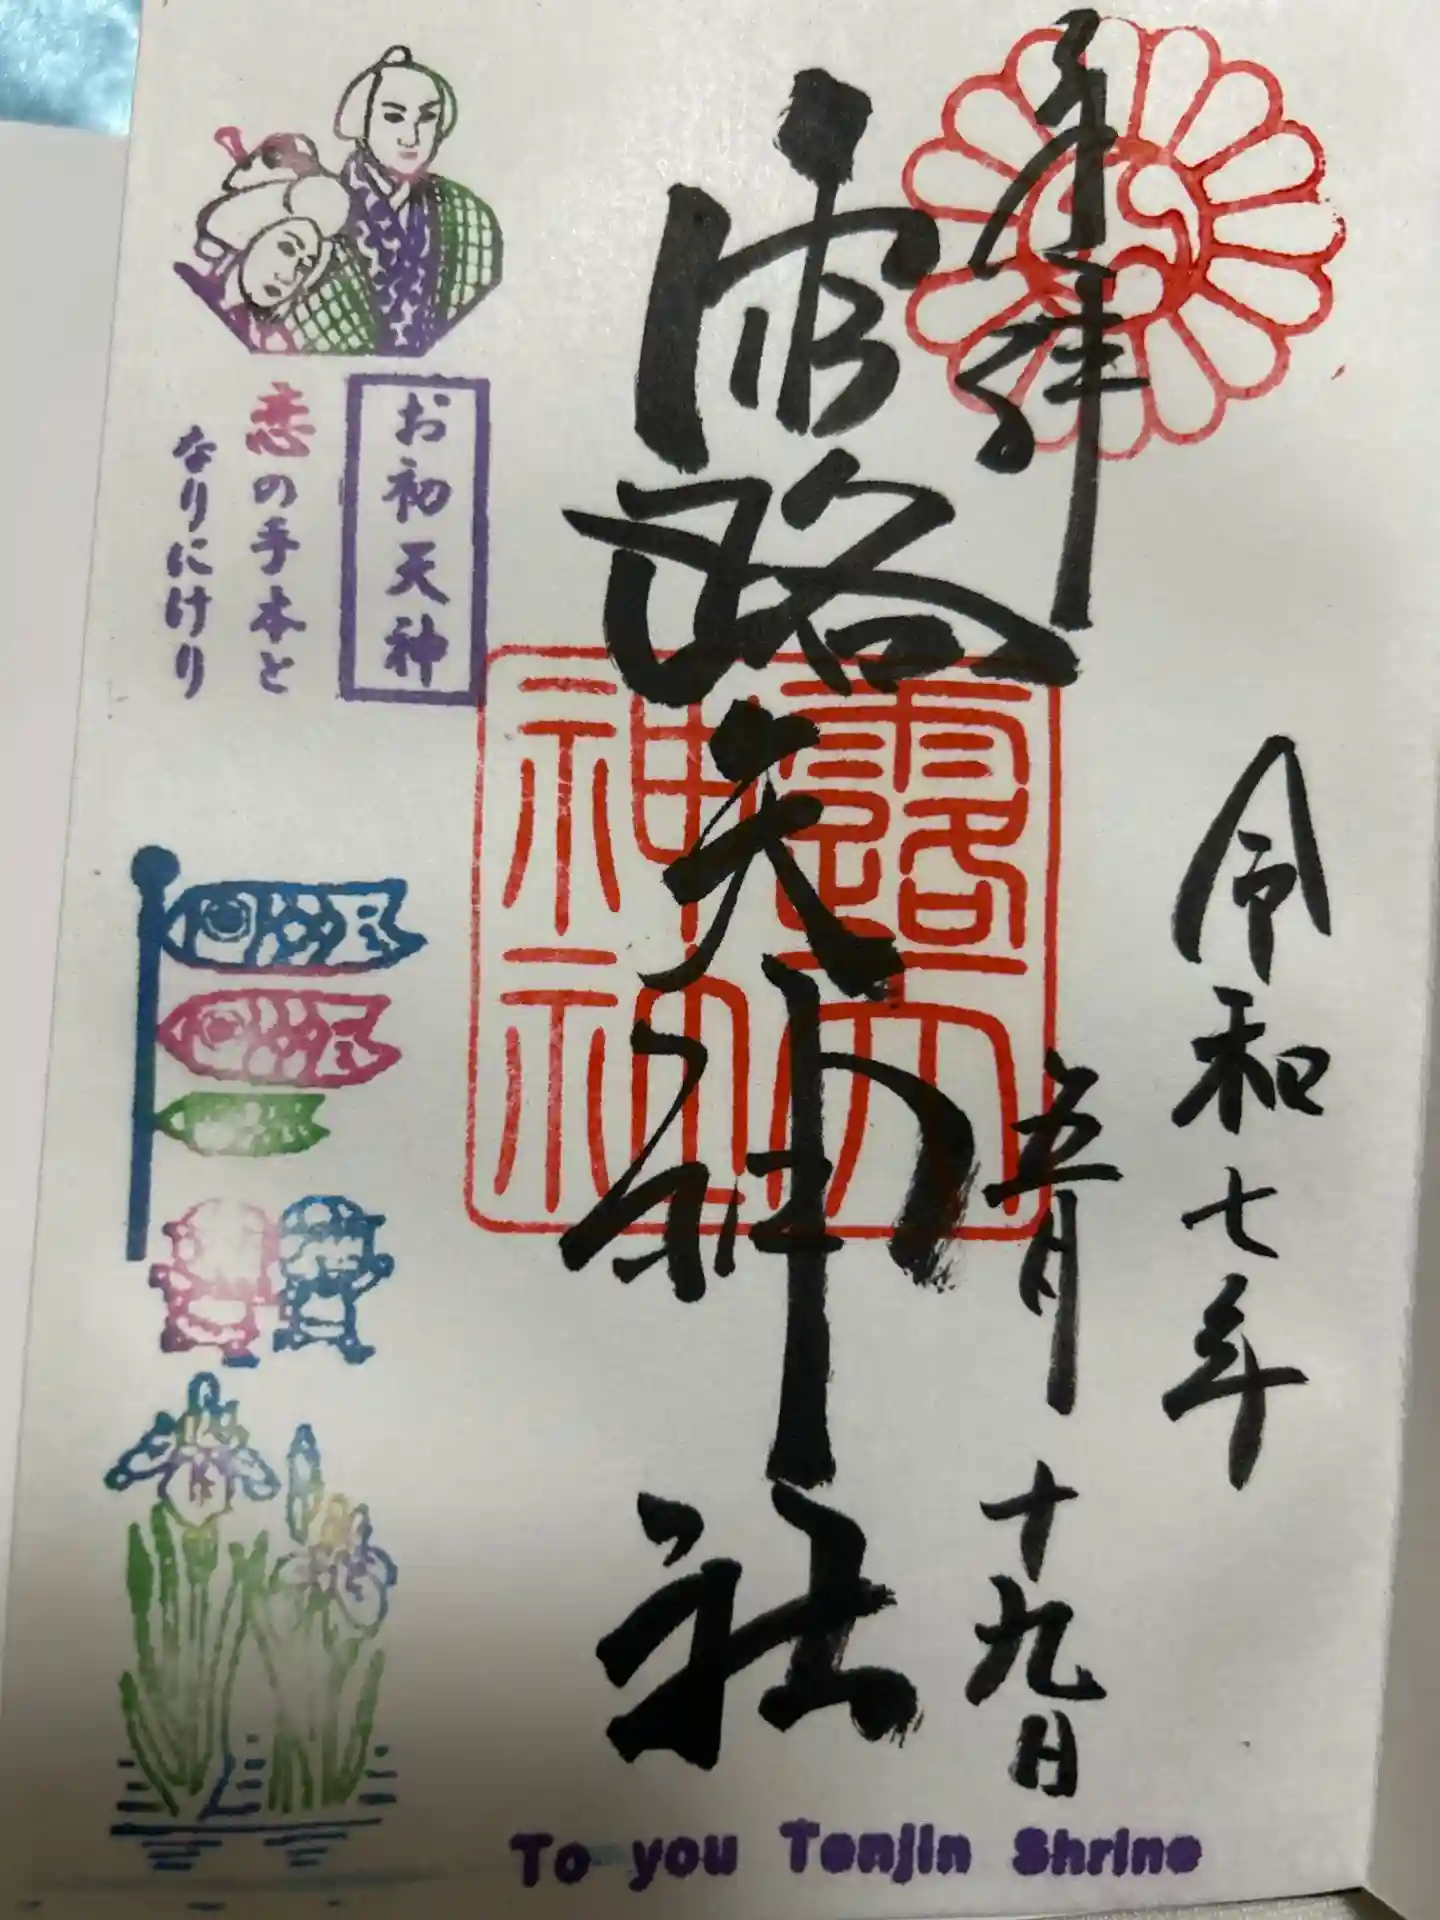 奉拝
令和七年
五月十九日
露天神社
露天
神社
お初天神
恋の手本と
なりにけり
To you Tenjin Shrine